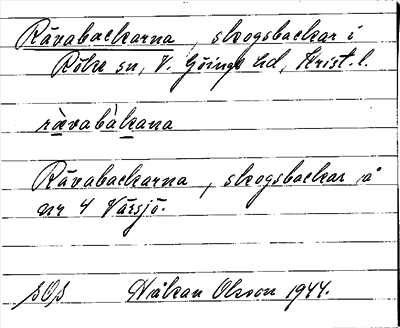 Rävabackarna, skogsbackar i
Röke sn, V. Göinge hd, Krist. l.
rävabàkana
Rävabackarna, skogsbackar å
nr 4 Värsjö.
SOS Håkan Olsson 1944.